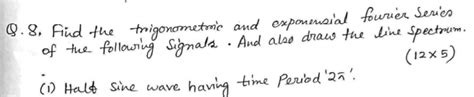 Q.8. Find the trigonometric and exponensial fourier Series
of the following Signals. And also draw the line Spectrum.
(12×5)
(1) Half Sine wave having time Period '2π'.